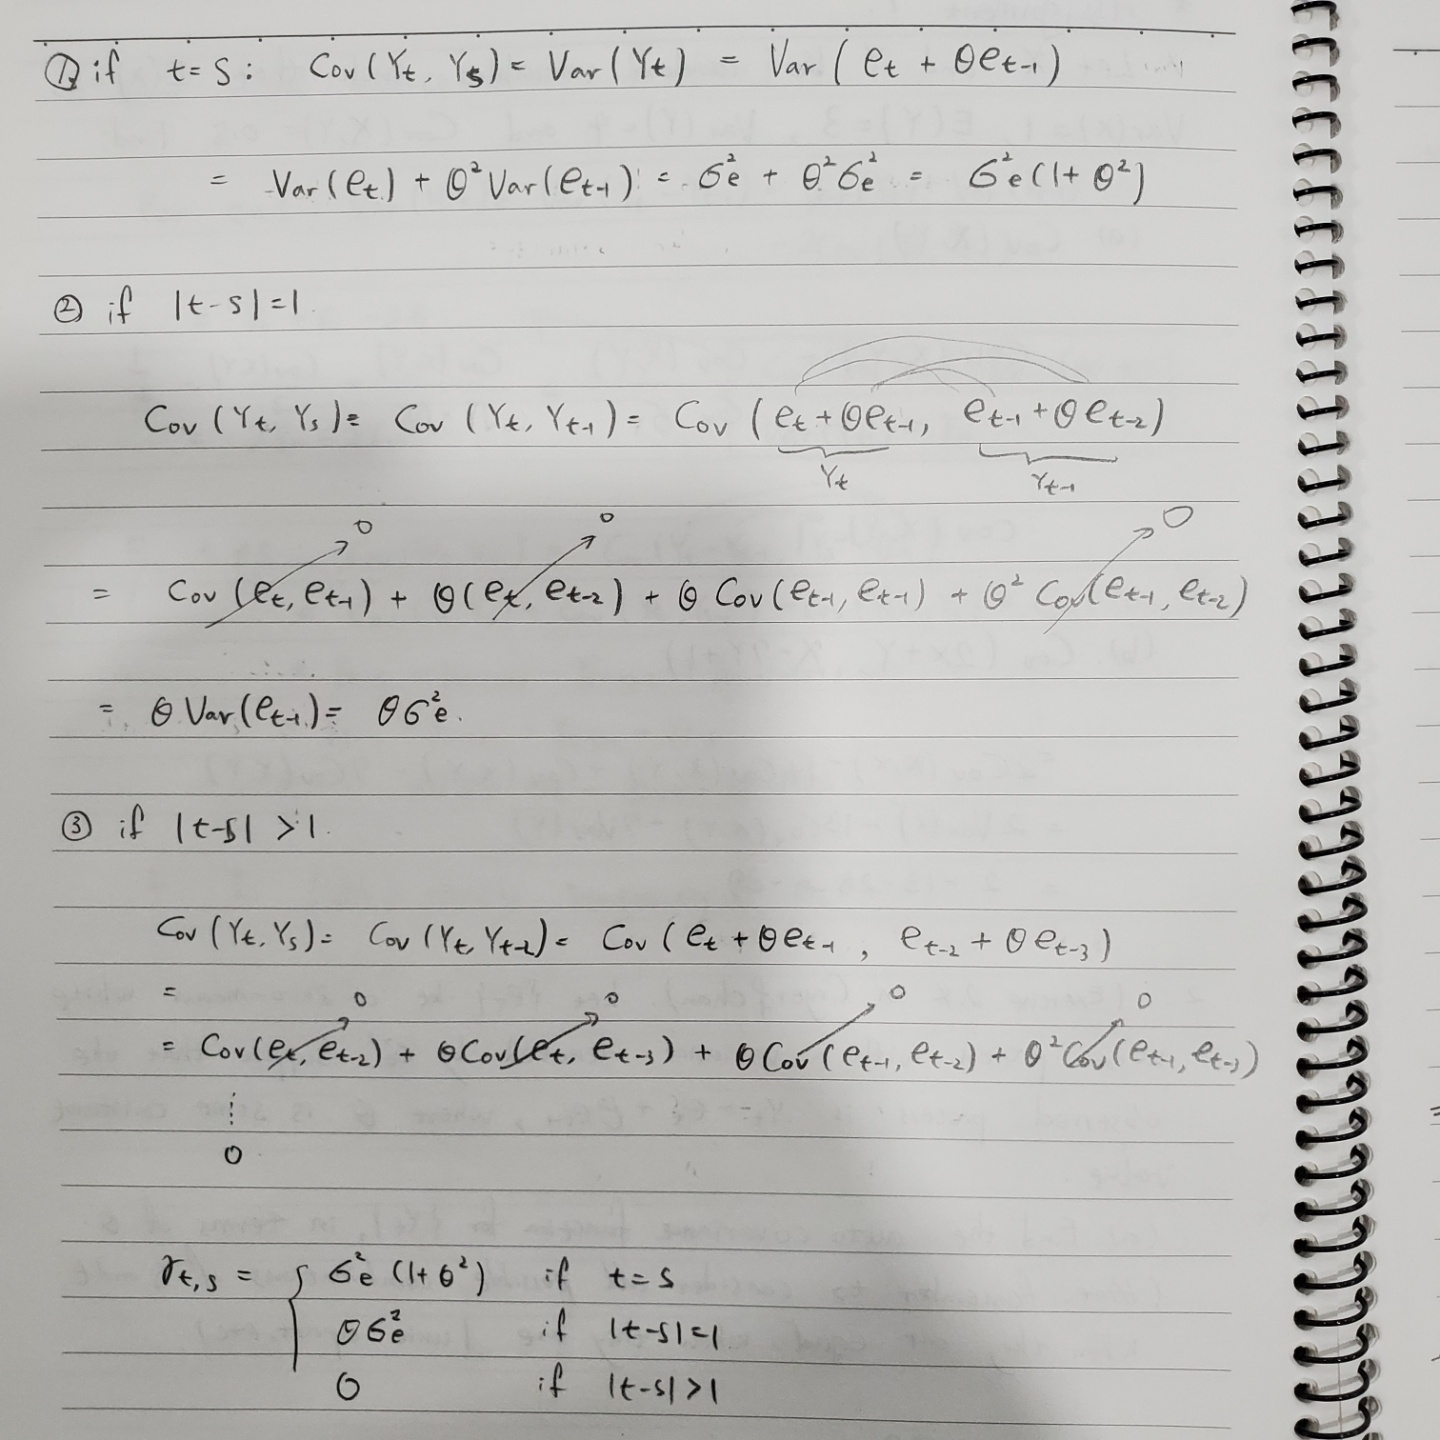 ① if t = s : Cov(Yt, Ys) = Var(Yt) = Var(et + θet-1)
= Var(et) + θ²Var(et-1) = σ²e + θ²σ²e = σ²e(1+θ²)
② if |t-s|=1.
Cov(Yt, Ys) = Cov(Yt, Yt-1) = Cov(et + θet-1, et-1 + θet-2)
Yt Yt-1
0 0 0
= Cov(et, et-1) + θ(et, et-2) + θ Cov(et-1, et-1) + θ² Cov(et-1, et-2)
= θ Var(et-1) = θσ²e.
③ if |t-s| > 1.
Cov(Yt, Ys) = Cov(Yt, Yt-2) = Cov(et + θet-1, et-2 + θet-3)
= 0 0 0 0
= Cov(et, et-2) + θCov(et, et-3) + θCov(et-1, et-2) + θ²Cov(et-1, et-3)
⋮
0
γt,s = { σ²e (1+θ²) if t = s
θσ²e if |t-s|=1
0 if |t-s|>1